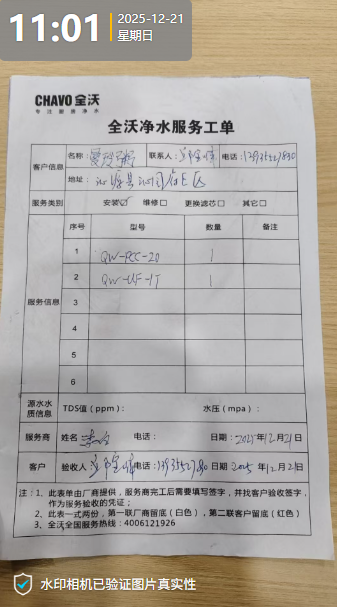 11:01
2025-12-21
星期日
CHAVO全沃
专注健康净水
全沃净水服务工单
客户信息
名称：
联系人：
电话：
地址：
服务类别 安装☑ 维修□ 更换滤芯□ 其它□
服务信息
序号 型号 数量 备注
1 QW-PCC-20 1
2 QW-UF-1T 1
3
4
5
6
源水水质信息 TDS值（ppm）： 水压（mpa）：
服务商 姓名 电话： 日期：2025年12月21日
客户 验收人 电话： 日期 2025年12月21日
注：1、此表单由厂商提供，服务商完工后需要填写签字，并找客户验收签字，
作为服务验收的凭证；
2、此表一式两份，第一联厂商留底（白色），第二联客户留底（红色）
3、全沃全国服务热线：4006121926
水印相机已验证图片真实性